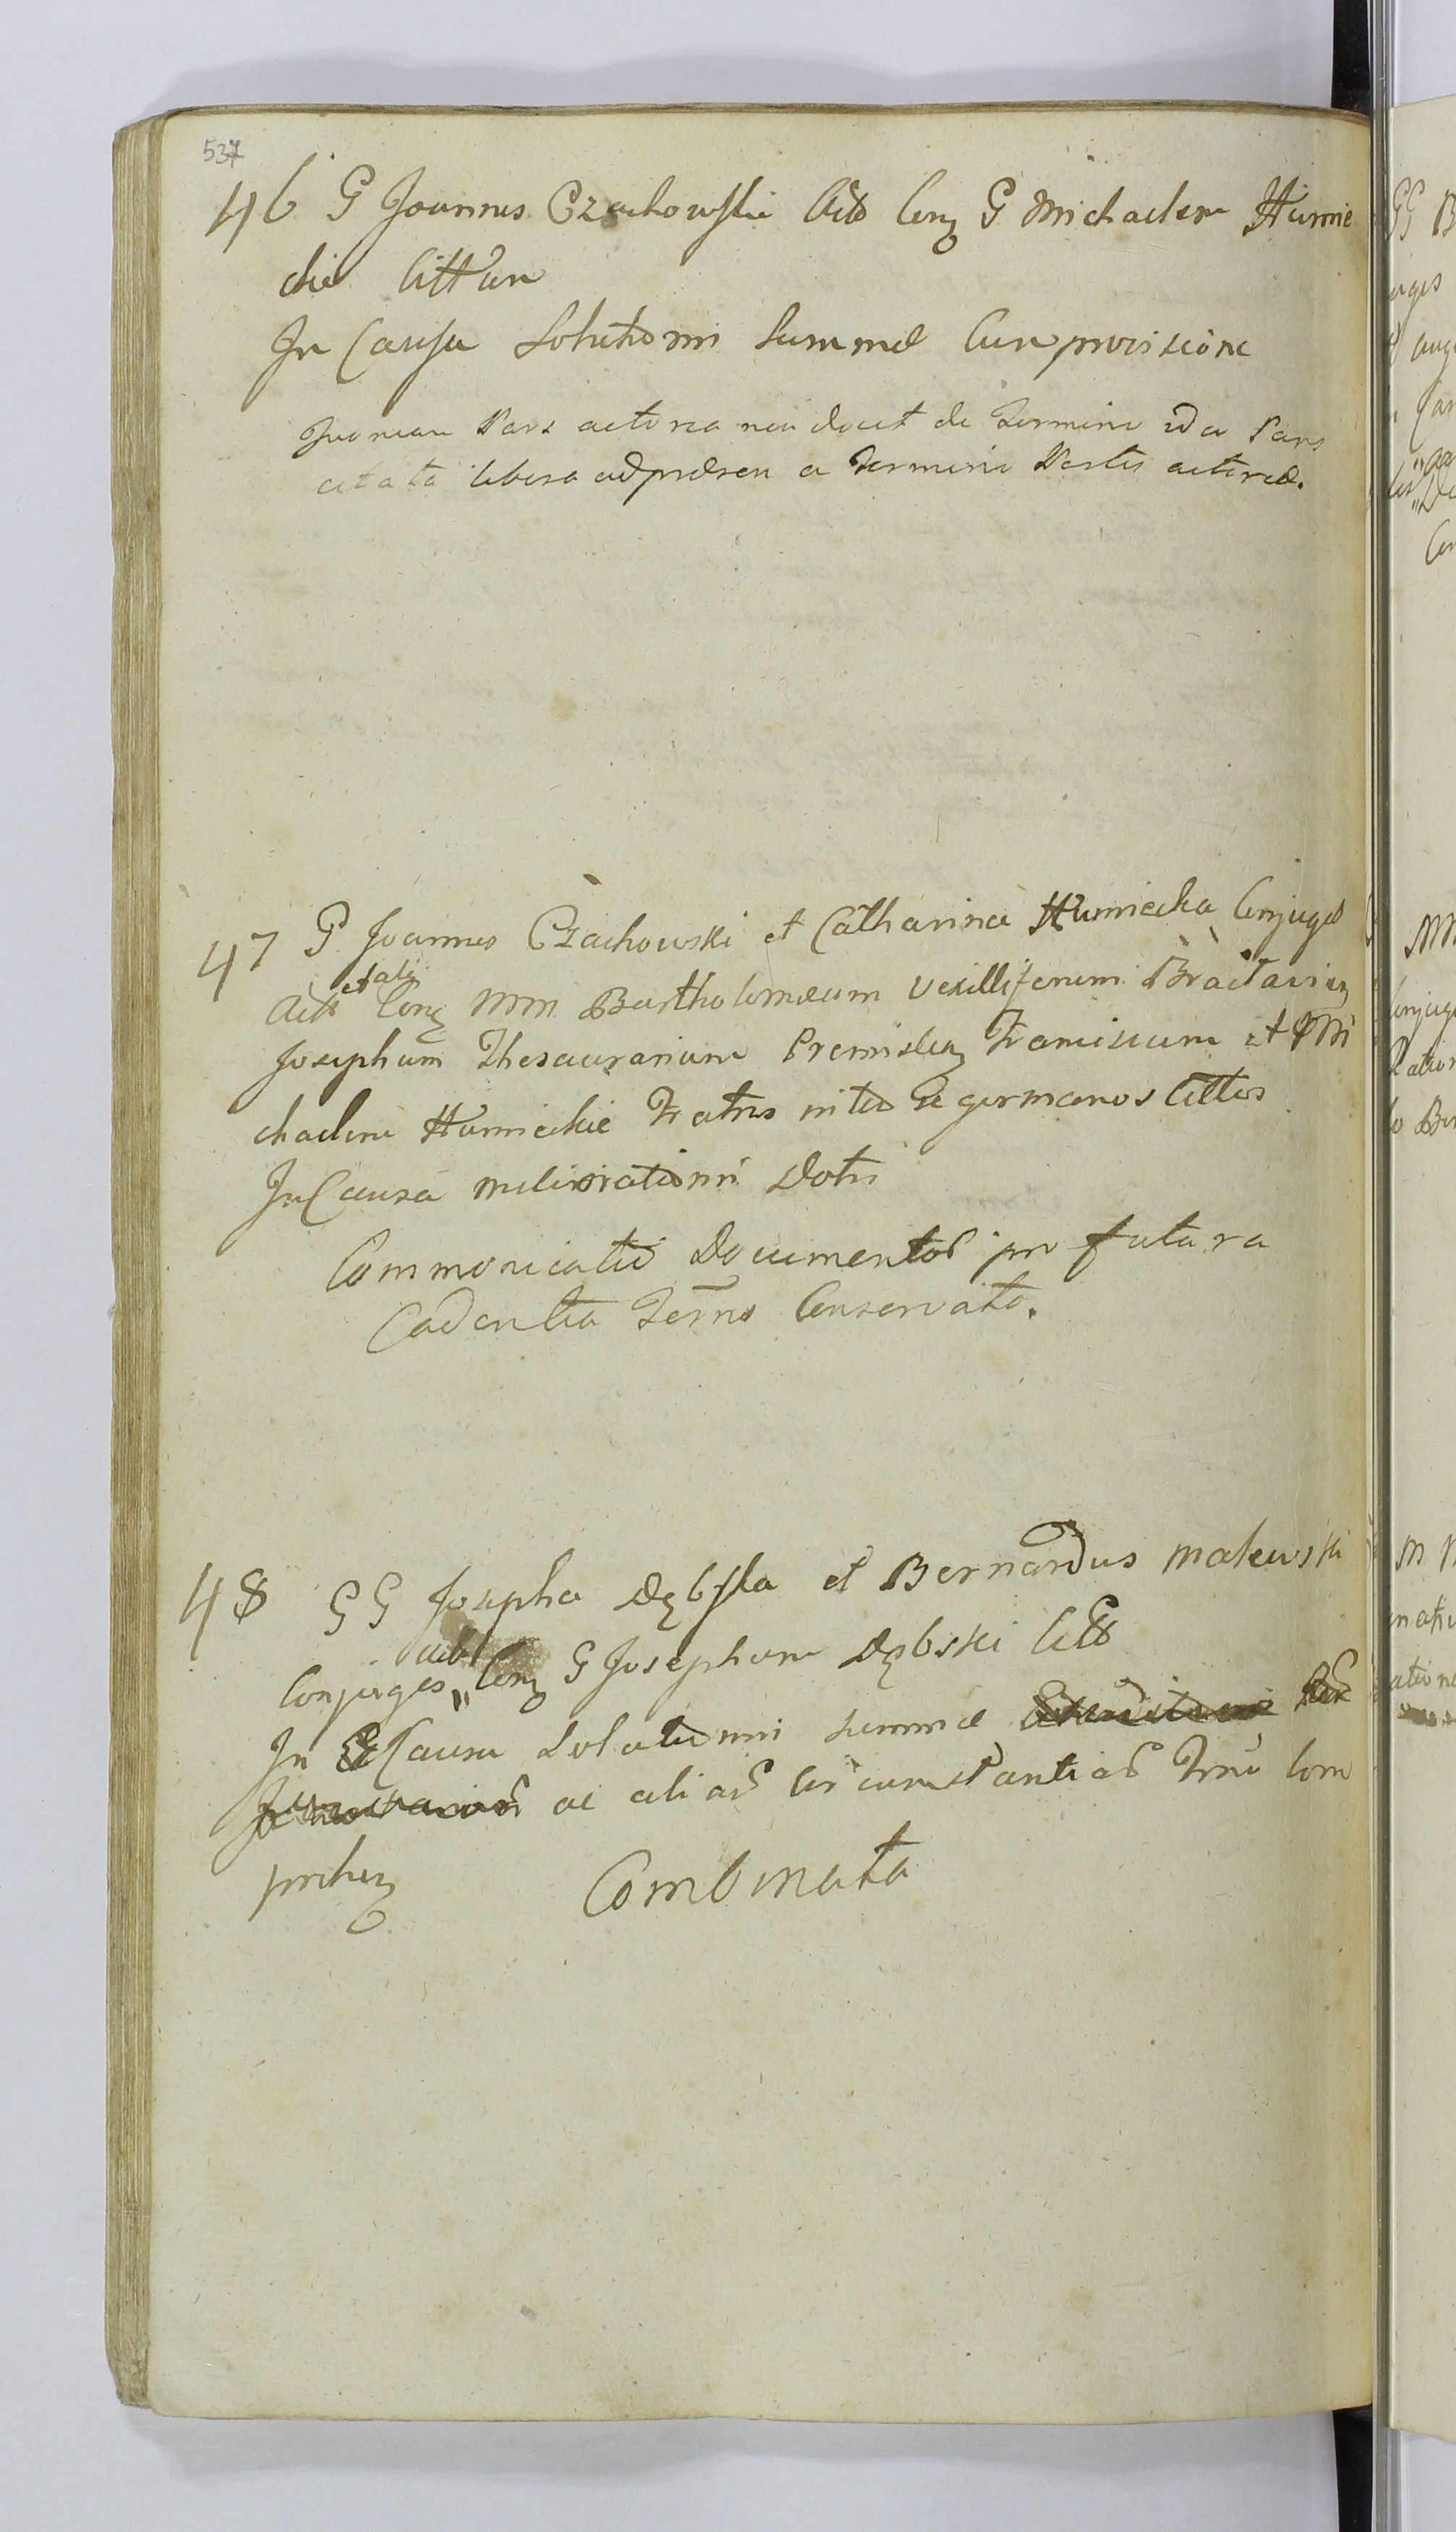 537
46 G Joannes Czachowski Act Conz G Michaelem Humie
cki Cittum
In Causa Solutionis Summæ Cum provisione
Quoniam Pars actorea non docet de Termino ideo Pars
citata libera ad præsen a Termino Partis actoreæ.
47 G Joannes Czachowski et Catharina Humiecka Conjuges
et alii
Act Conz MM Bartholomæum Vexilliferum Braclavien
Josephum Thesaurarium Premislien Franciscum et Mi
chaelem Humieckie Fratres inter se germanos Cittos
In Causa meliorationis Dotis
Communicatio Documentor pro futura
Cadentia Termo Conservato.
48 GG Josepha Dębska et Bernardus Makowski
act
Conjuges " Conz G Josephum Dębski Citt
In Causa Solutionis summæ
ac aliar circumstantiar Trmi Com
prehen Combinata